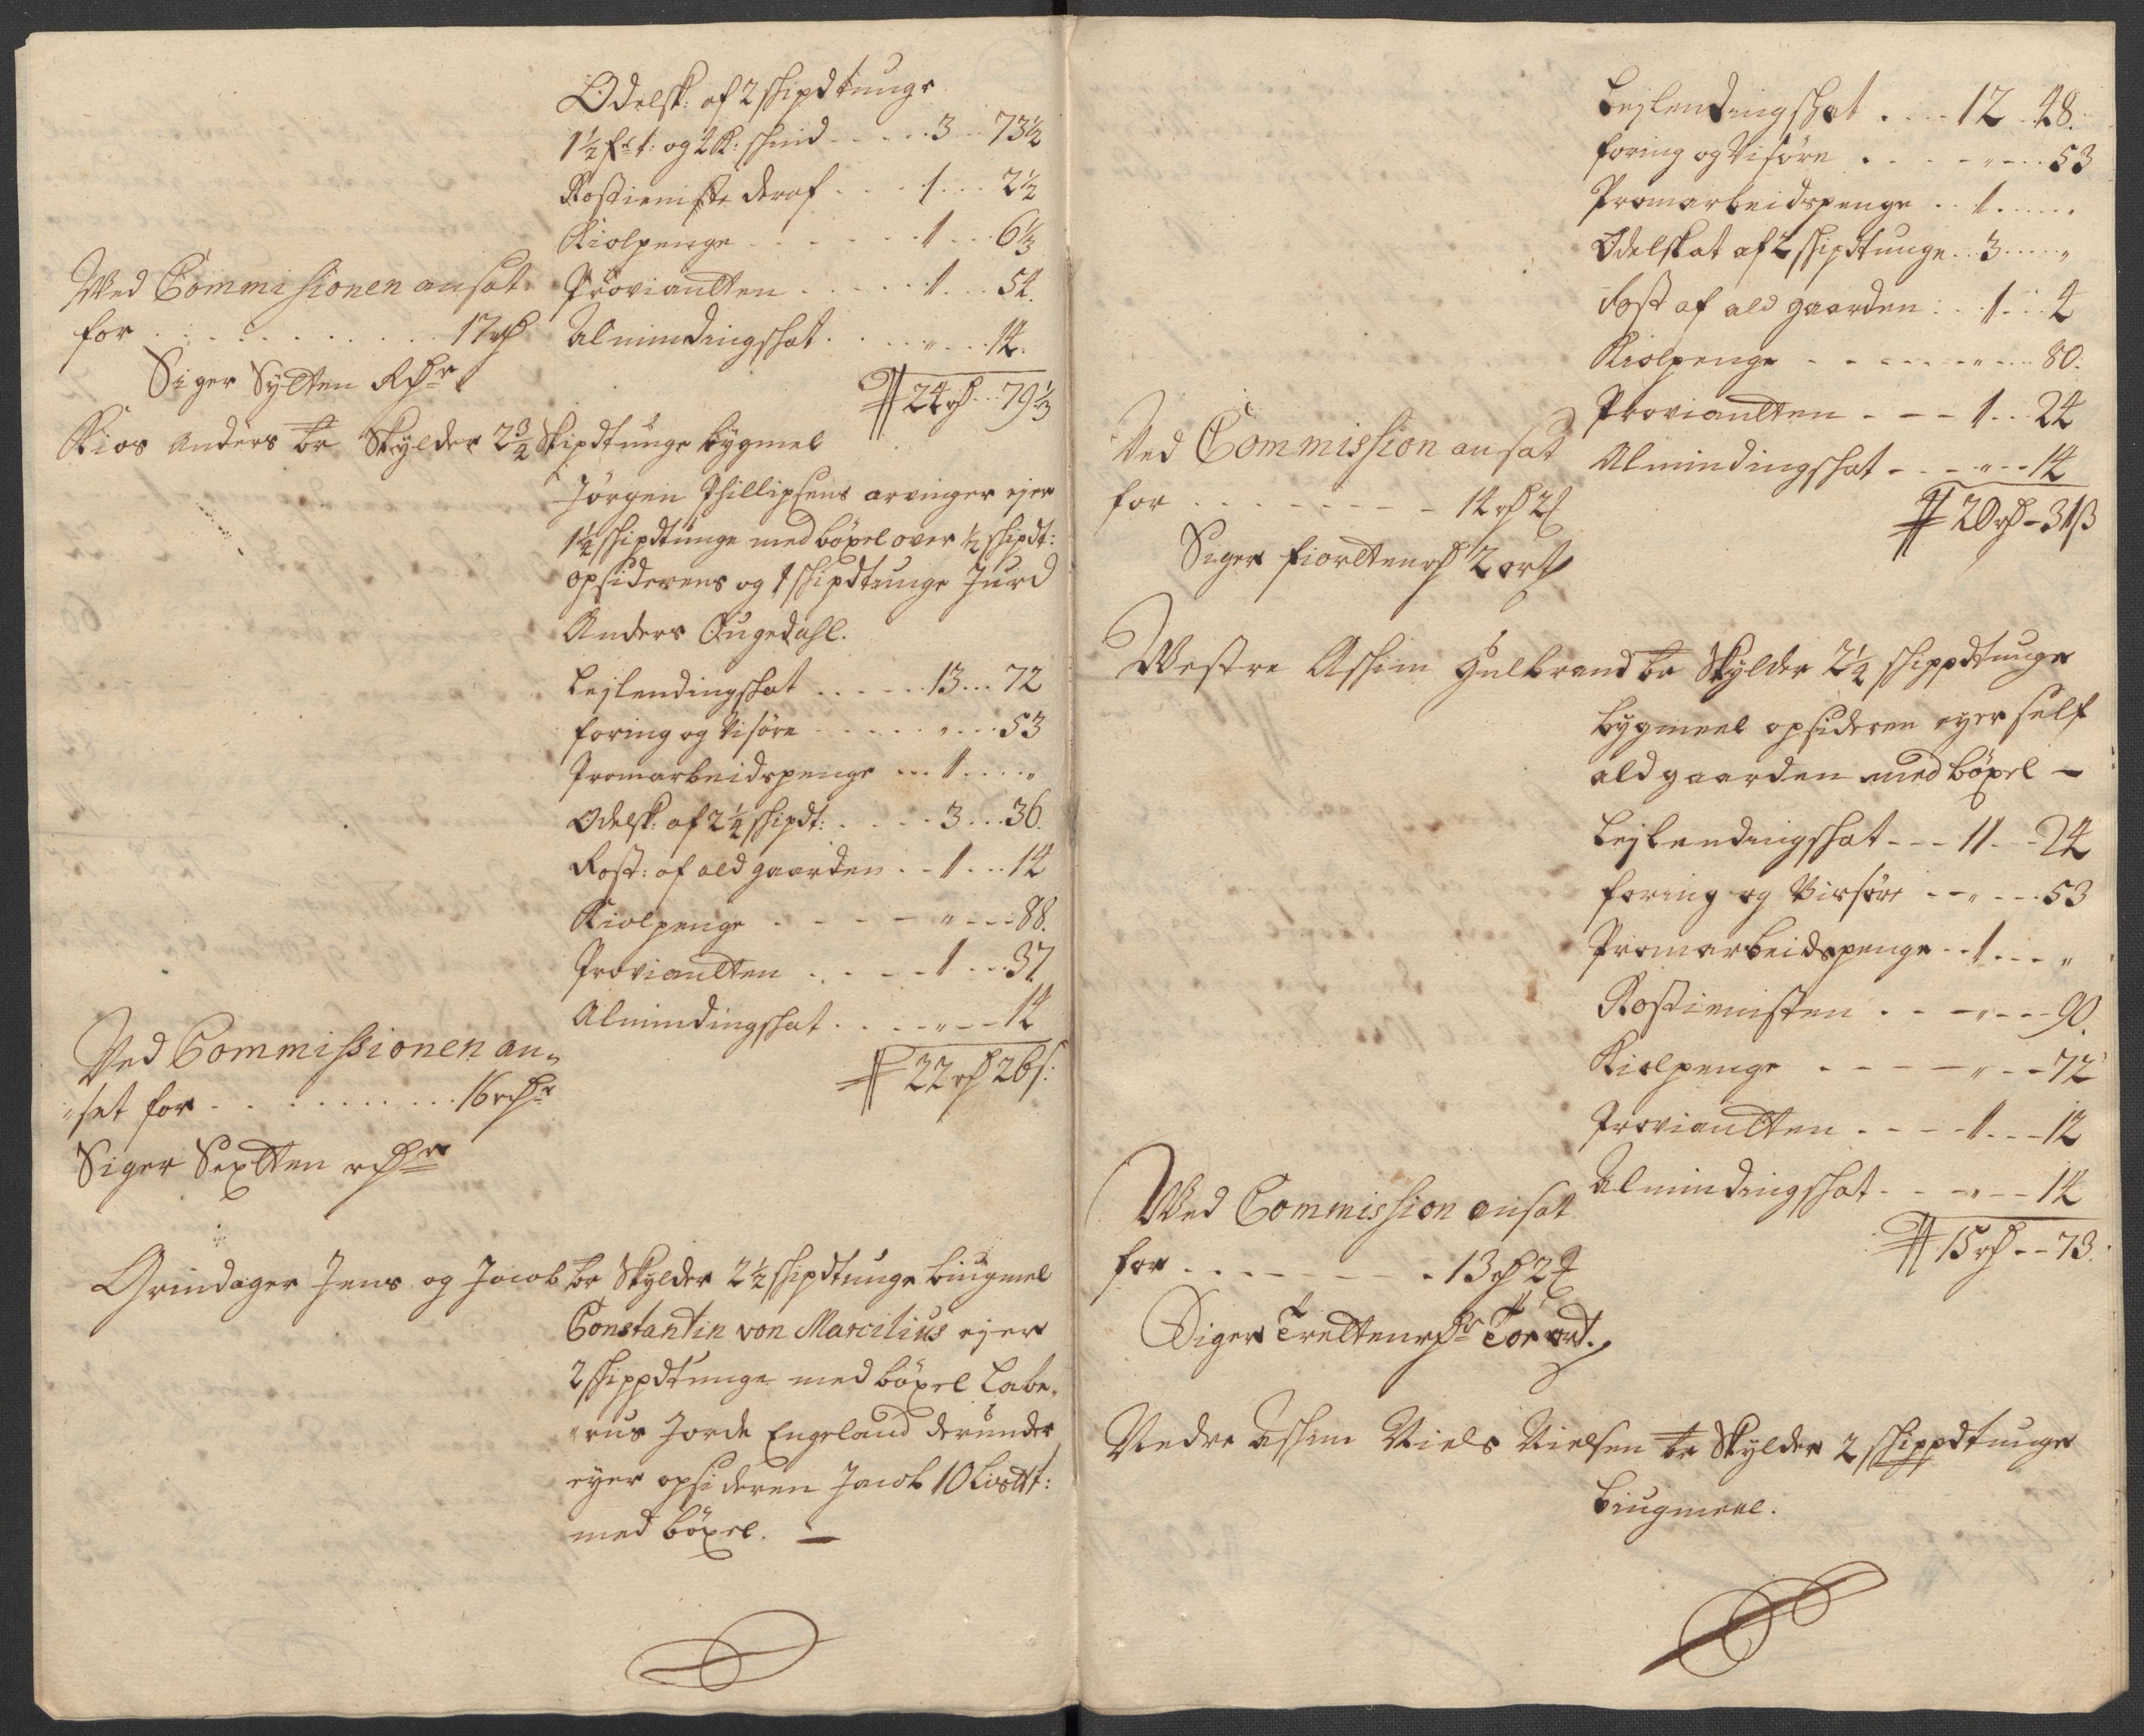 Odelsk: af 2 skipdtunge
1½ fr: t: og 4 K: skind - - - - 3 - - 73½
Rostieniste deraf - - - 1 - - - 2½
Kiolpenge - - - - - - 1 - - - 6⅓
Proviandten - - - - - 1 - - - 54.
Almindingskat - - - - „ - - - 14.
24 rd - - 79⅓
Wed Commissionen ansat
for - - - - - - - - - 17 rd
Siger Sÿtten Rdr
Kios Anders br Skylder 2¾ Skipdtunge bÿgmel
Jörgen Phillipsens arvinger ejer
1½ skipdtunge med böxel over ½ skipdt:
opsiderens og 1 skipdtunge Jurd
Anders Ougedahl.
Leilendingskat - - - - - 13 - - - 72
foring og Visöre - - - - - „ - - - 53
Tromarbeidspenge - - - 1 - - - „
Odelsk: af 2¼ skipdt: - - - - 3 - - - 36.
Rost: af ald gaarden - - 1 - - - 14
Kiolpenge - - - - - „ - - - 88.
Proviandten - - - - 1 - - - 37
Almindingskat - - - - „ - - - 14
22 rd 26 s:
Ved Commissionen an„
„set for - - - - - - - - - 16 rdr
Siger Sexten rdr
Grindager Jens og Jacob br Skylder 2½ skipdtunge biugmel
Constantin von Marcilius ejer
2 skippdtunge med böxel Labe„
„rus Jorde Engeland derunder
eyer opsideren Jacob 10 Lisdtt:
med böxel. —
Leilendingskat - - - 12 - - 48.
foring og Visöre - - - - „ - - - 53
Tromarbeidspenge - - 1 - - - „
Odelskat af 2 skipdtunge - - 3 - - - „
Rost af ald gaarden - - 1 - - - 4
Kiolpenge - - - - - „ - - - 80.
Proviandten - - - 1 - - 24
Almindingskat - - - „ - - 14
20 rd - 31 ß
Ved Commission ansat
for - - - - - - - - 14 rd 2
Siger fiorten rd 2 ort
Westre Askim Gulbrand br Skylder 2¼ skippdtunge
bygmeel opsideren eyer self
ald gaarden med böxel —
Leilendingskat - - - 11 - - 24
foring og Visöre - - „ - - - 53
Tromarbeidspenge - - 1 - - - „
Rostienisten - - - „ - - - 90.
Kiolpenge - - - - - „ - - 72
Proviandten - - - - 1 - - - 12
Almindingskat - - - „ - - 14
15 rd - - 73.
Wed Commission ansat
for - - - - - - - - 13 rd 2
Siger Tretten rdr Tor ort.
Nedre Askim Niels Nielsen br Skylder 2 skippdtunge
biugmeel.